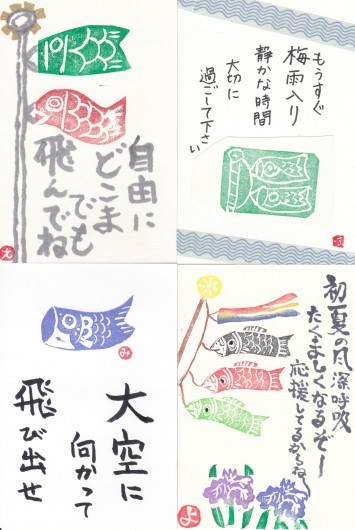 自由に
どこま
でも
飛んでね
え
もうすぐ
梅雨入り
静かな時間
大切に
過ごして下さい
み
大空に
向かって
飛び出せ
初夏の風深呼吸
たくましくなるぞ〜
応援してるからね
よ